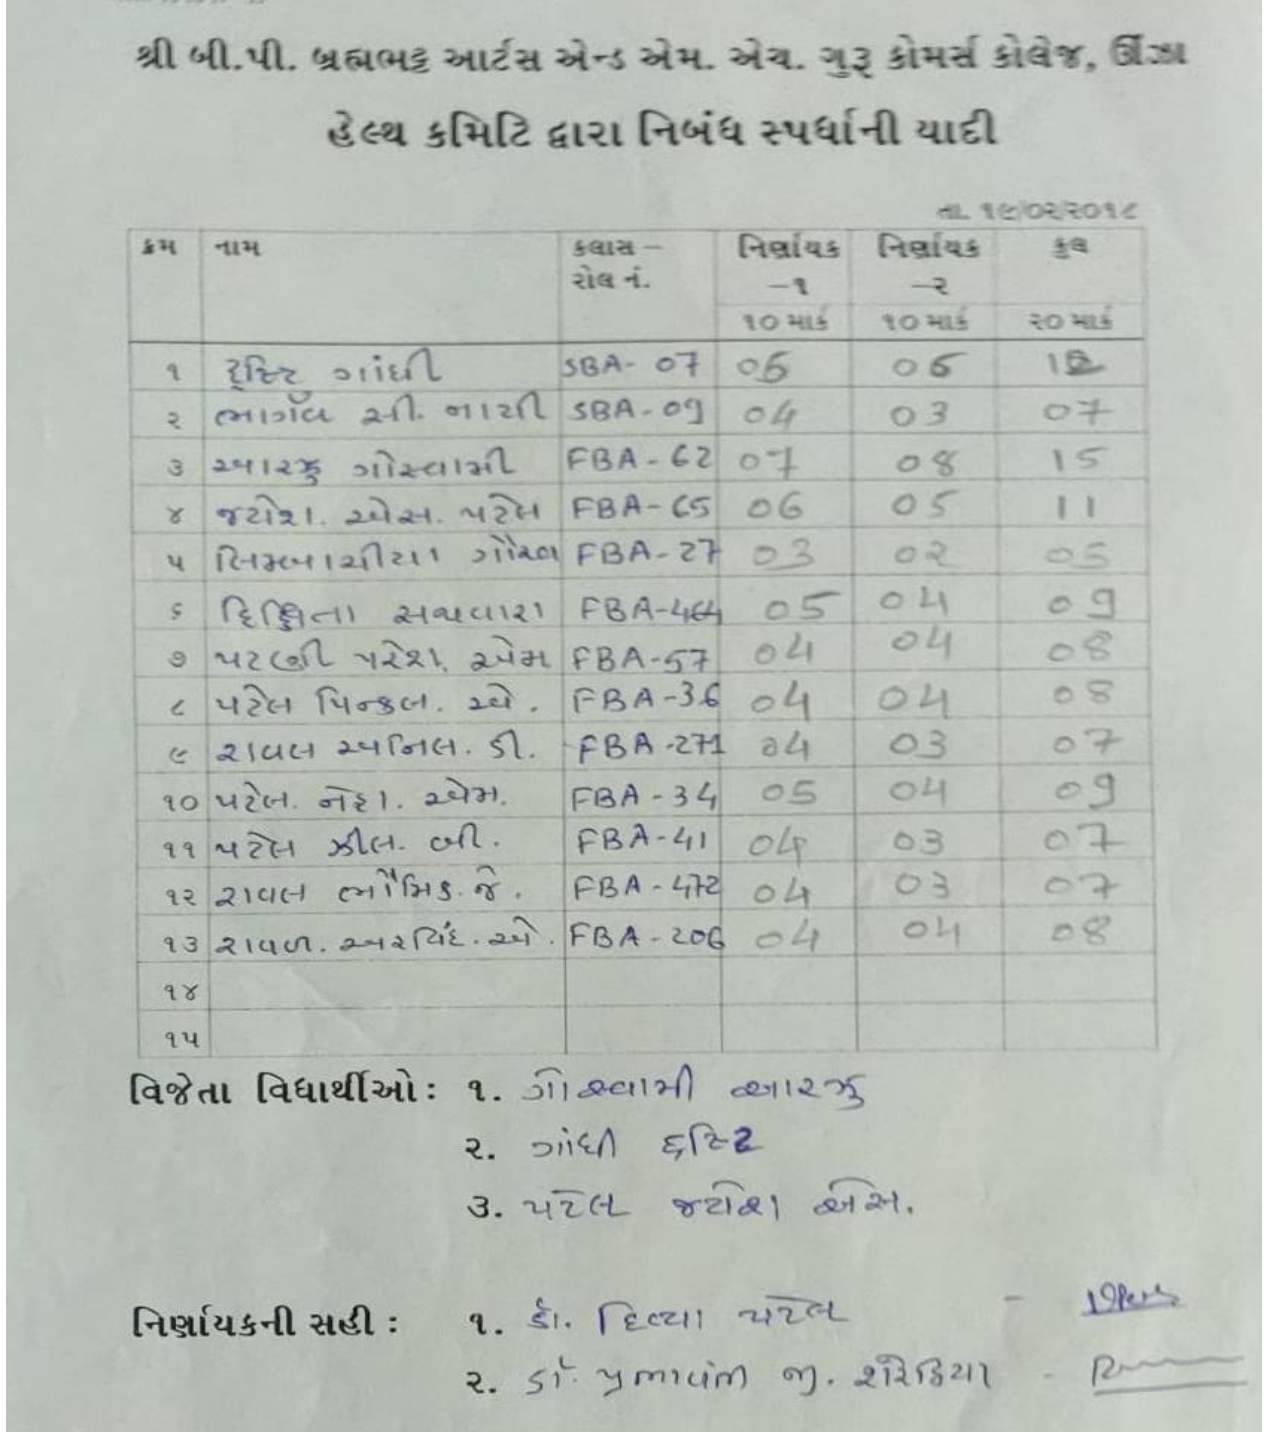 શ્રી બી.પી. બ્રહ્મભટ્ટ આર્ટસ એન્ડ એમ. એચ. ગુરૂ કોમર્સ કોલેજ, ઊંઝા
હેલ્થ કમિટિ દ્વારા નિબંધ સ્પર્ધાની યાદી
તા. ૧૯/૦૨/૨૦૧૮
ક્રમ નામ કલાસ – નિર્ણાયક નિર્ણાયક કુલ
રોલ નં. –૧ –૨
૧૦ માર્ક ૧૦ માર્ક ૨૦ માર્ક
૧ ગાંધી SBA- 07 06 06 12
૨ ભાર્ગવ સી. નાયી SBA-09 04 03 07
૩ આરઝુ ગોસ્વામી FBA-62 07 08 15
૪ જયેશ. એસ. પટેલ FBA-65 06 05 11
૫ લિમ્બાચીયા ગૌરવ FBA-27 03 02 05
૬ દિક્ષિતા સથવારા FBA-464 05 04 09
૭ પટણી પરેશ. એમ FBA-57 04 04 08
૮ પટેલ પિન્કલ. એ. FBA-36 04 04 08
૯ રાવલ અનિલ. ડી. FBA-271 04 03 07
૧૦ પટેલ. નેહા. એમ. FBA-34 05 04 09
૧૧ પટેલ ઝીલ. બી. FBA-41 04 03 07
૧૨ રાવલ ભૌમિક. જે. FBA-472 04 03 07
૧૩ રાવળ. અરવિંદ. એ. FBA-206 04 04 08
૧૪
૧૫
વિજેતા વિદ્યાર્થીઓ: ૧. ગોસ્વામી આરઝુ
૨. ગાંધી દ્રષ્ટિ
૩. પટેલ જયેશ એસ.
નિર્ણાયકની સહી : ૧. ડૉ. દિવ્યા પટેલ -
૨. ડૉ. જી. -